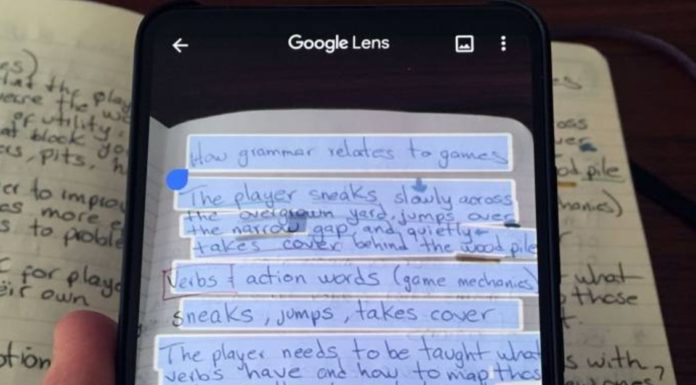 Google Lens
How grammar relates to games
The player sneaks slowly across
the overgrown yard, jumps over
the narrow gap and quietly
takes cover behind the wood pile
Verbs = action words (game mechanics)
sneaks, jumps, takes cover
The player needs to be taught what
verbs have and how to map thos
to improv
es more e
s to proble
c for playe
eir own
otion
oss
pile
hanics)
what
those
s with